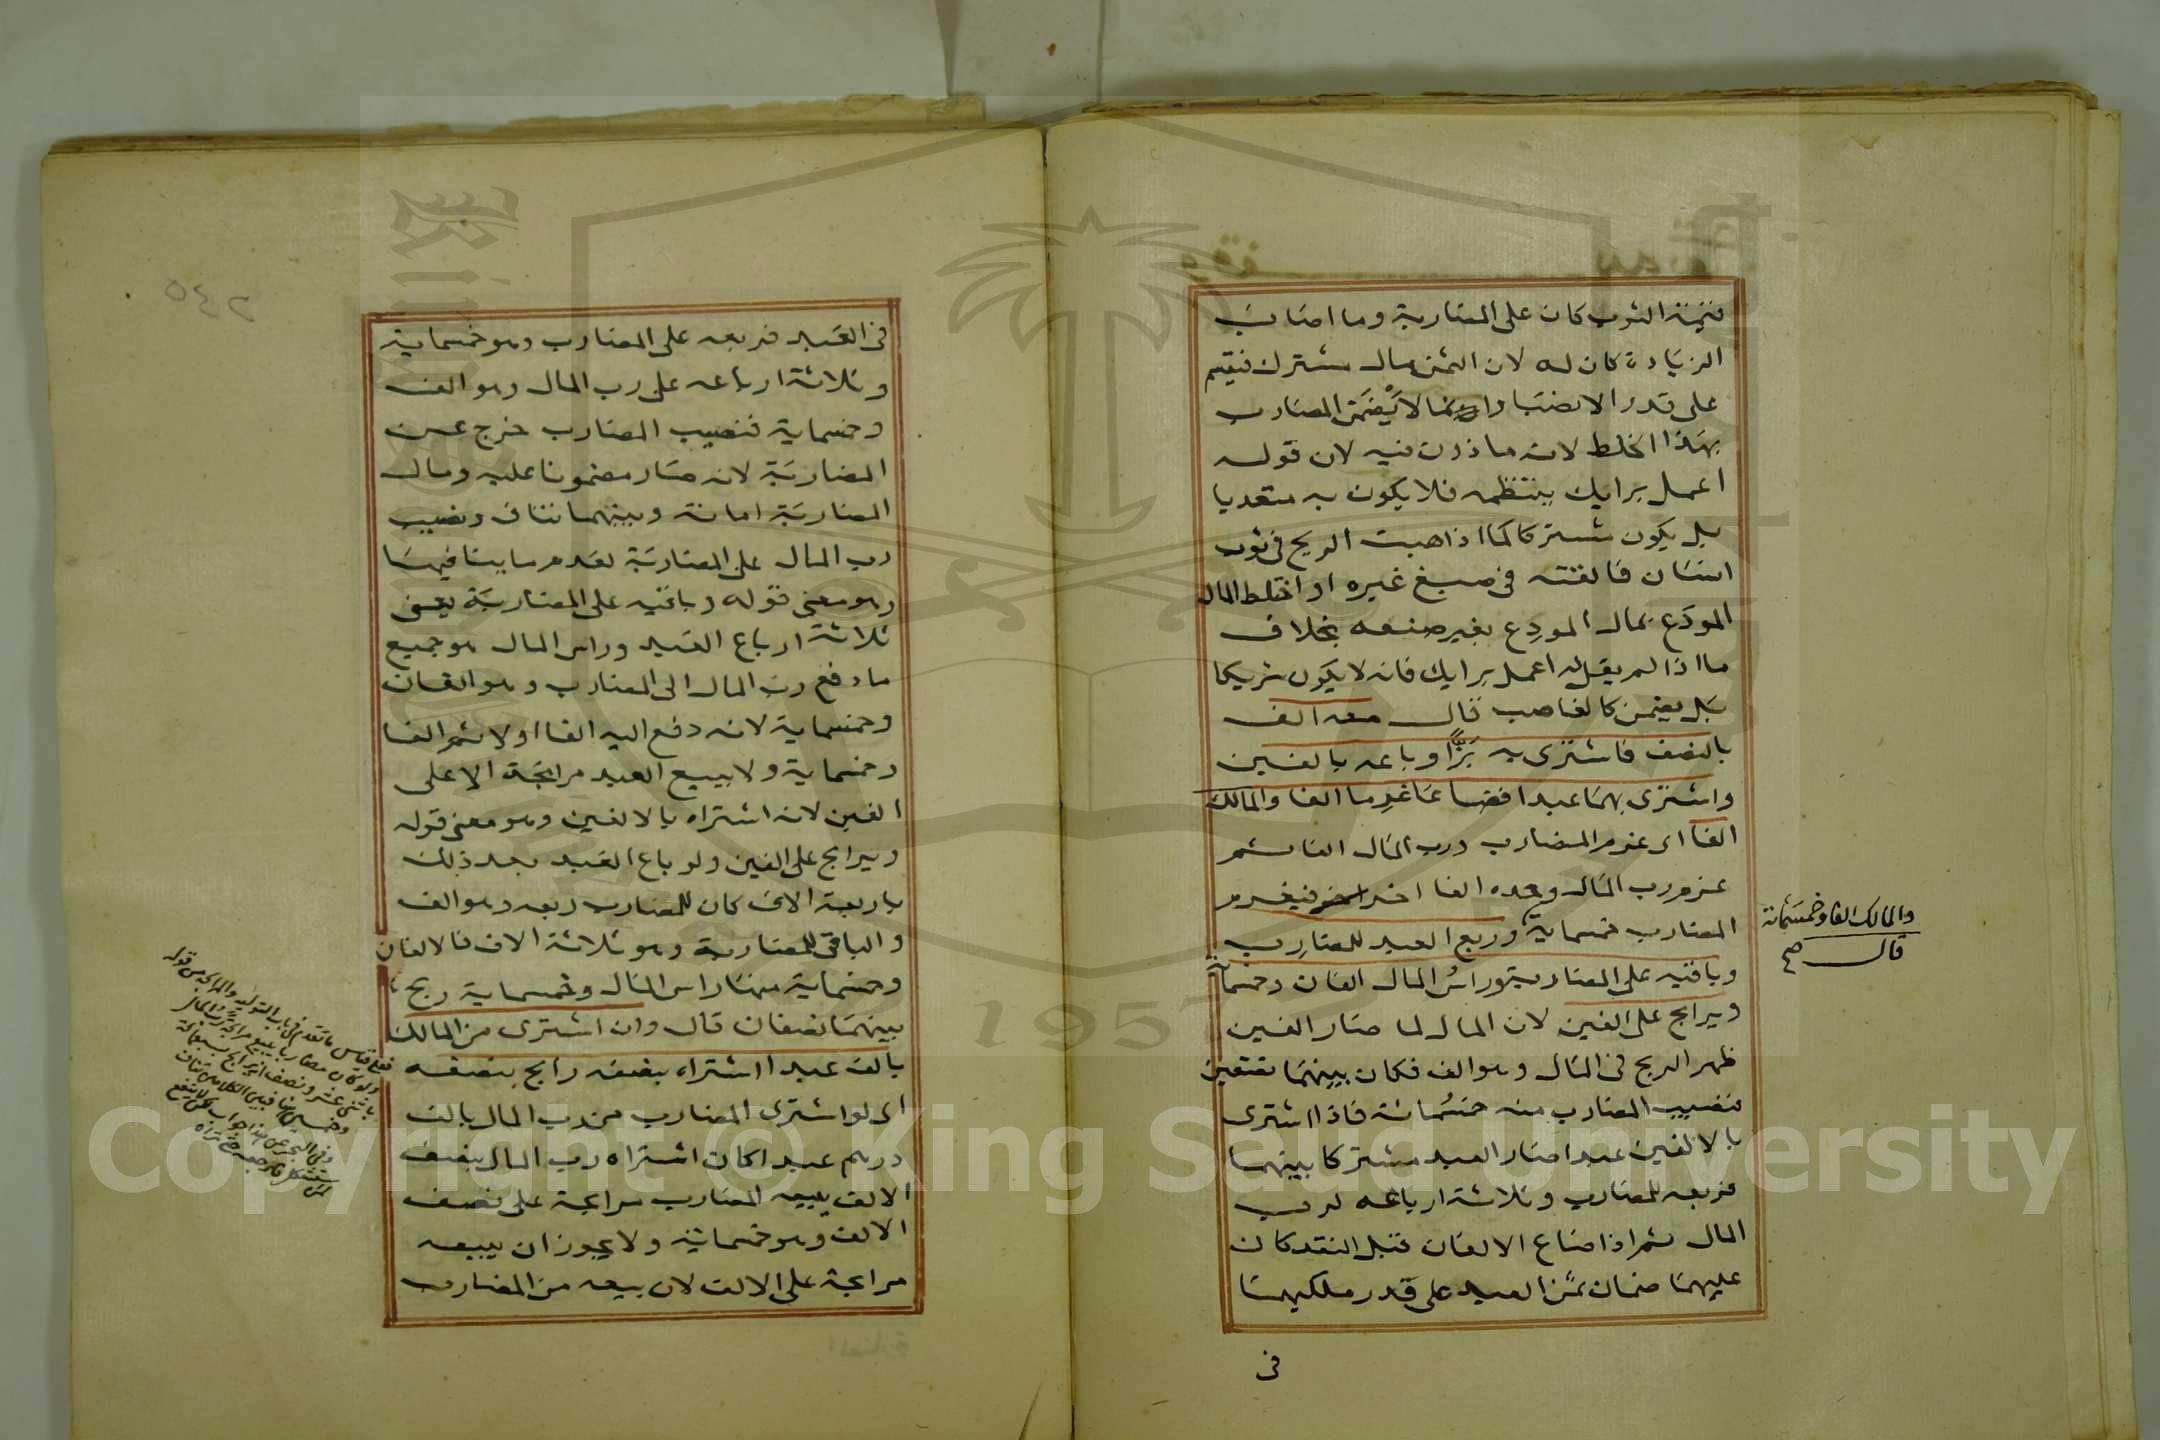 قيمة الثوب كان على المضاربة وما اصاب
الزيادة كان له لان الثمن مال مشترك فيقسم
على قدر الانصبا وانما لا يضمن المضارب
بهذا الخلط لانه ماذون فيه لان قوله
اعمل برايك ينتظمه فلا يكون به متعديا
بل يكون مشتركا كما اذا هبت الريح في ثوب
انسان فالقته في صبغ غيره او اختلط المال
المودَع بمال المودِع بغير صنعه بخلاف
ما اذا لم يقل له اعمل برايك فانه لا يكون شريكا
بل يضمن كالغاصب قال معه الف
بالنصف فاشترى به بَزًّا وباعه بالفين
واشترى بهما عبدا فضاعا غرما الفا والمالك
الفا اى غرم المضارب ورب المال الفا ثم
غرم رب المال وحده الفا اخر فيغرم
المضارب خمسماية وربع العبد للمضارب
وباقيه على المضاربة وراسُ المال الفان وخمسمائة
ويرابح على الفين لان المال لما صار الفين
ظهر الربح في المال وهو الف فكان بينهما نصفين
فنصيب المضارب منه خمسُمائة فاذا اشترى
بالالفين عبدا صار العبد مشتركا بينهما
فربعه للمضارب وثلاثة ارباعه لرب
المال ثم اذا ضاع الالفان قبل النقد كان
عليهما ضمان ثمن العبد على قدر ملكيهما
في
والمالك الفا وخمسمائة
قال صح
في العبد فربعه على المضارب وهو خمسماية
وثلاثة ارباعه على رب المال وهو الف
وخمسماية فنصيب المضارب خرج عن
المضاربة لانه صار مضمونا عليه ومال
المضاربة امانة وبينهما تناف ونصيب
رب المال على المضاربة لعدم ما ينافيها
وهو معنى قوله وباقيه على المضاربة يعني
ثلاثة ارباع العبد وراس المال هو جميع
ما دفع رب المال الى المضارب وهو الفان
وخمسماية لانه دفع اليه الفا اولا ثم الفا
وخمسماية ولا يبيع العبد مرابحة الا على
الفين لانه اشتراه بالالفين وهو معنى قوله
ويرابح على الفين ولو باع العبد بعد ذلك
باربعة الاف كان للمضارب ربعه وهو الف
والباقي للمضاربة وهو ثلاثة الاف فالالفان
وخمسماية منها راس المال وخمسماية ربح
بينهما نصفان قال وان اشترى من المالك
بالف عبدا اشتراه بنصفه رابح بنصفه
اى لو اشترى المضارب من رب المال بالف
درهم عبدا كان اشتراه رب المال بنصف
الالف يبيعه المضارب مرابحة على نصف
الالف وهو خمسمائة ولا يجوز ان يبيعه
مرابحة على الالف لان بيعه من المضارب
٥٤٢
ما تقدم في باب التولية والمرابحة من قوله
ولو كان مضاربا يبيع مرابحة رب المال
باثني عشر ونصف